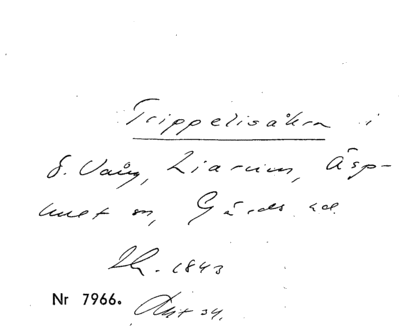 Trippelisåkra i
S. Vång, Liarum, Äsp-
huset m, Gärds hd
Lk. 1843
Nr 7966. Akt 34.